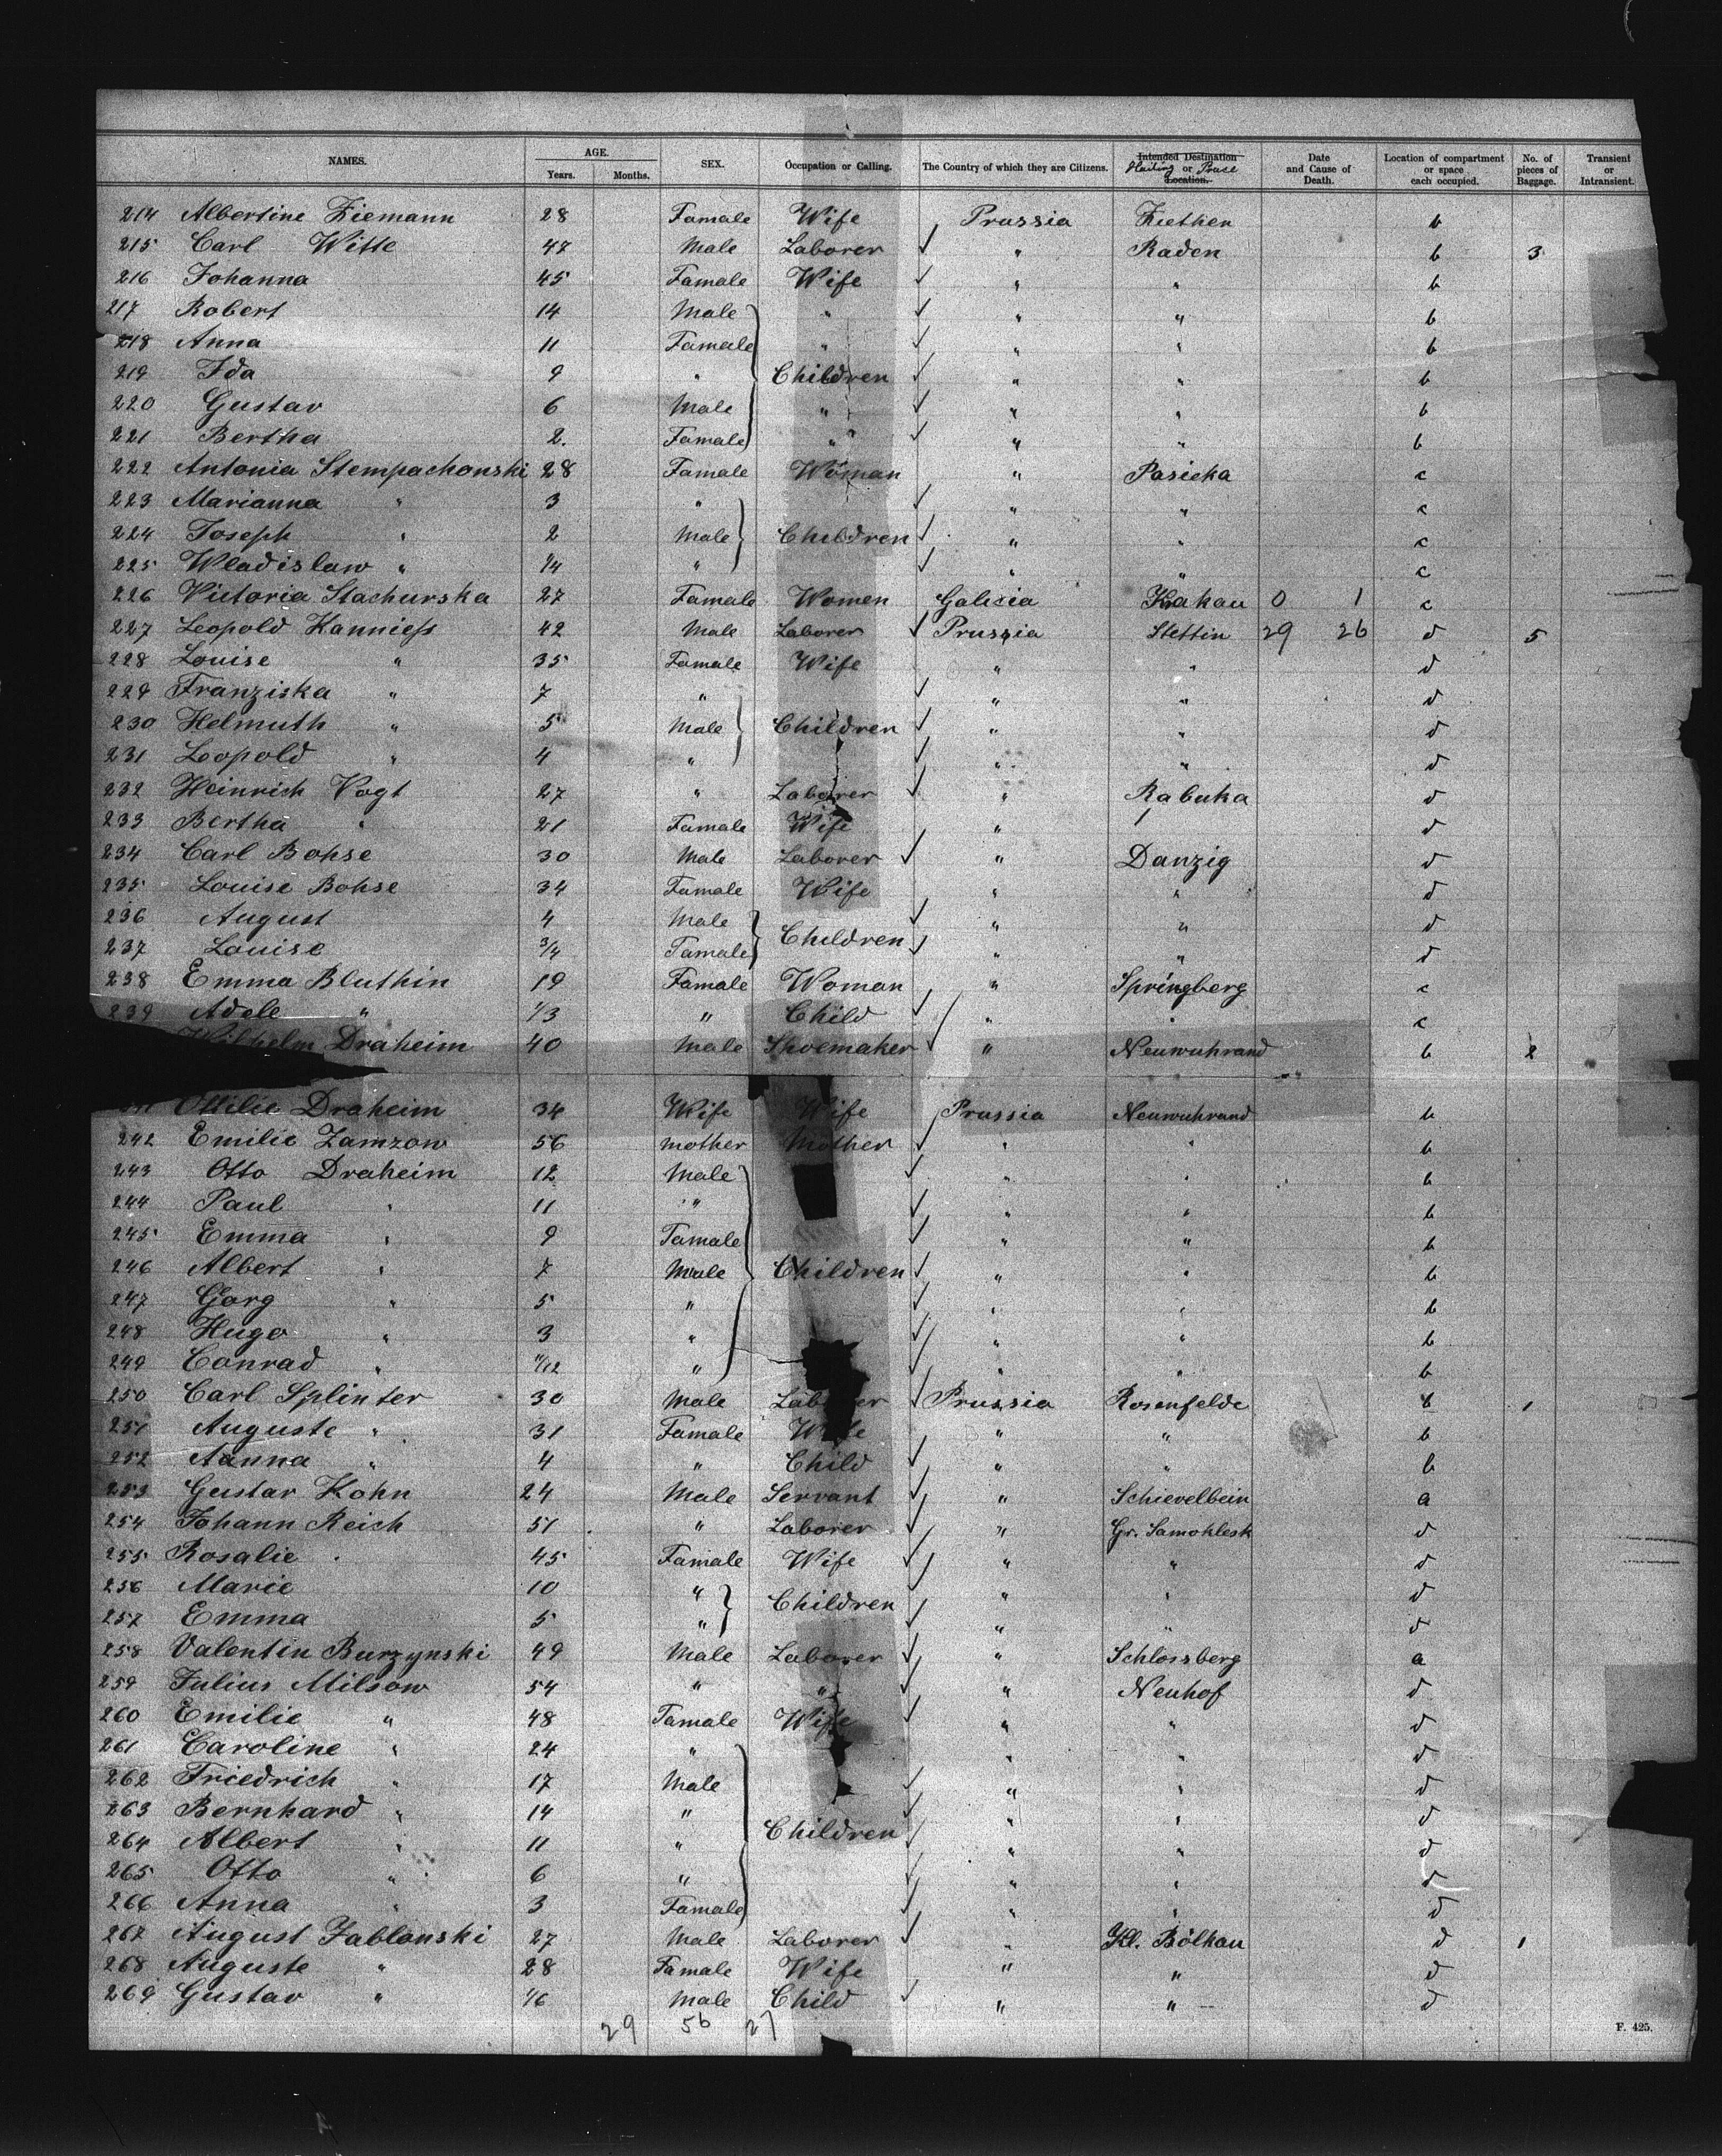 NAMES. AGE. Years. Months. SEX. Occupation or Calling. The Country of which they are Citizens. Intended Destination or Location. Hailing Place Date and Cause of Death. Location of compartment or space each occupied. No. of pieces of Baggage. Transient or Intransient.
214 Albertine Ziemann 28 Famale Wife Prussia Ziethen b
215 Carl Witte 47 Male Laborer ✓ " Raden b 3
216 Johanna 45 Famale Wife ✓ " " b
217 Robert 14 Male " ✓ " " b
218 Anna 11 Famale " ✓ " " b
219 Ida 9 " Children ✓ " " b
220 Gustav 6 Male " ✓ " " b
221 Bertha 2. Famale " " ✓ " " b
222 Antonia Stempachonski 28 Famale Woman " Pasieka c
223 Marianna " 3 " ✓ " " c
224 Joseph " 2 Male Children ✓ " " c
225 Wladislaw " 1/4 " ✓ " " c
226 Victoria Stachurska 27 Famale Women Galicia Krakau 0 1 c
227 Leopold Kanniess 42 Male Laborer ✓ Prussia Stettin 29 26 d 5
228 Louise " 35 Famale Wife " " d
229 Franziska " 7 " ✓ " " d
230 Helmuth " 5 Male Children ✓ " " d
231 Leopold " 4 " ✓ " " d
232 Heinrich Vogt 27 " Laborer ✓ " Rabuka d
233 Bertha " 21 Famale Wife " d
234 Carl Bohse 30 Male Laborer ✓ " Danzig d
235 Louise Bohse 34 Famale Wife " " d
236 August 4 Male ✓ " " d
237 Louise 3/4 Famale Children ✓ " " d
238 Emma Bluthin 19 Famale Woman " Springberg c
239 Adele " 1/3 " Child ✓ " " c
Wilhelm Draheim 40 Male Shoemaker ✓ " Neuwuhrand b 2
Ottilie Draheim 34 Wife Wife Prussia Neuwuhrand b
242 Emilie Zamzow 56 mother Mother ✓ " " b
243 Otto Draheim 12 Male ✓ " " b
244 Paul " 11 " ✓ " " b
245 Emma " 9 Famale ✓ " " b
246 Albert " 7 Male Children ✓ " " b
247 Gorg " 5 " ✓ " " b
248 Hugo " 3 " ✓ " " b
249 Conrad " 11/12 " ✓ " " b
250 Carl Splinter 30 Male Laborer ✓ Prussia Rosenfelde b 1
251 Auguste " 31 Famale Wife " " b
252 Aanna " 4 " Child ✓ " " b
253 Gustav Kohn 24 Male Servant ✓ " Schievelbein a
254 Johann Reich 51 " Laborer ✓ " Gr. Samohlesk d
255 Rosalie 45 Famale Wife ✓ " " d
256 Marie 10 " Children ✓ " " d
257 Emma 5 " ✓ " " d
258 Valentin Burzynski 49 Male Laborer ✓ " Schlossberg a
259 Julius Milsow 54 " " ✓ " Neuhof d
260 Emilie " 48 Famale Wife ✓ " " d
261 Caroline " 24 " " " d
262 Friedrich " 17 Male ✓ " " d
263 Bernhard " 14 " ✓ " " d
264 Albert " 11 " Children ✓ " " d
265 Otto " 6 " ✓ " " d
266 Anna " 3 Famale ✓ " " d
267 August Jablonski 27 Male Laborer ✓ " Kl. Bölkau d 1
268 Auguste " 28 Famale Wife " " d
269 Gustav " 1/6 Male Child ✓ " " d
29 56 27
F. 425.